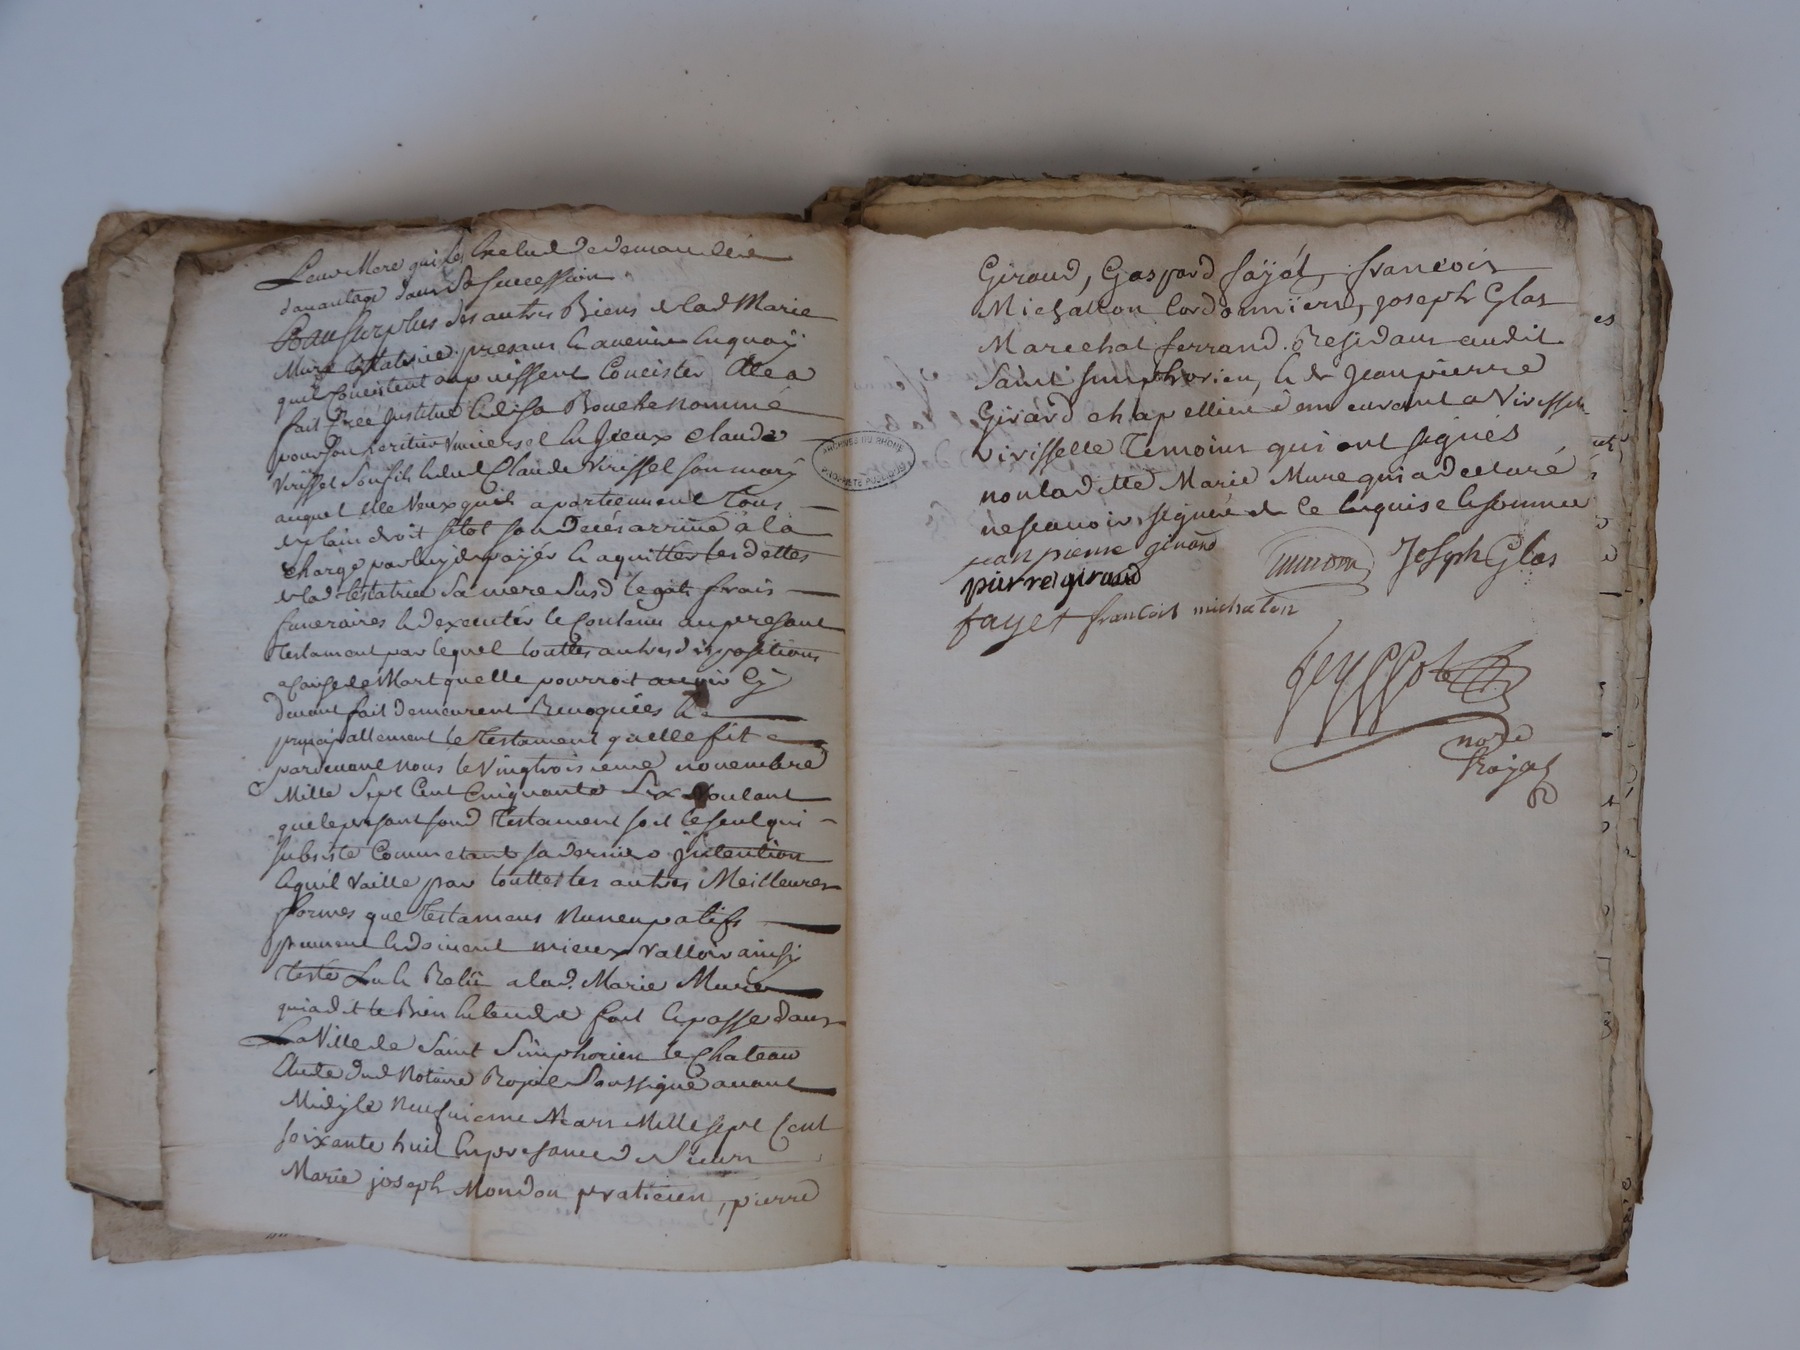 Leur Mere qui les Exclud de demander
davantage dans Sa Succession
Et au Surplus des autres Biens de lad Marie
Mure testatrice presans et avenir En quoy
quil Concistent ou puissent Concister Elle a
fait Créé Institué Et de sa Bouche nommé
pour Son heritier universel Le Sieur Claude
Virissel Son fils et dud Claude Virissel Son mary
auquel Elle Veux quils apartiennent Tous
de plain droit sitot Son Decés arrivé à la
charge par luy de payér Et aquitter les dettes
de lad testatrice Sa mere Susd legats frais
funeraires Et dexecuter le Contenu au presant
testament par lequel touttes autres dispositions
a Cause de Mort quelle pourroit avoir Cy
devant fait demeurent Revoquées Et
principallement le testament quelle fit
pardevant nous le vingtroisieme novembre
Mille Sept Cent Cinquante Six voulant
que le presant sond testament soit le seul qui
subsiste Comme etant sa derniere Intention
Et quil vaille par touttes les autres Meilleures
formes que testamens Nuncupatifs
peuvent Et doivent mieux valloir ainsy
testé Lu Et Relû a lad. Marie Mure
qui a dit le Bien Entendre fait Et passé dans
La Ville de Saint Simphorien le Chateau
Etude dud Notaire Royal Soussigné avant
Midy le Neufvieme Mars Mille sept Cent
soixante huit En presance de Sieurs
Marie joseph Mondon praticien, pierre
Giraud, Gaspard fayét, francois
Michallon Cordonniers, joseph Glas
Marechal ferrand Residans audit
Saint Simphorien, Et Sr Jean pierre
Girard chapellier demeurant a Virisselle
virisselle Temoins qui ont signés
non laditte Marie Mure qui a declaré
ne scavoir signer de Ce Enquise Et sommée
jean pierre girard
mondon
Joseph Glas
pierre giraud
fayet francois michalon
not.e
Royal
ARCHIVES DU RHONE
PROPRIETE PUBLIQUE